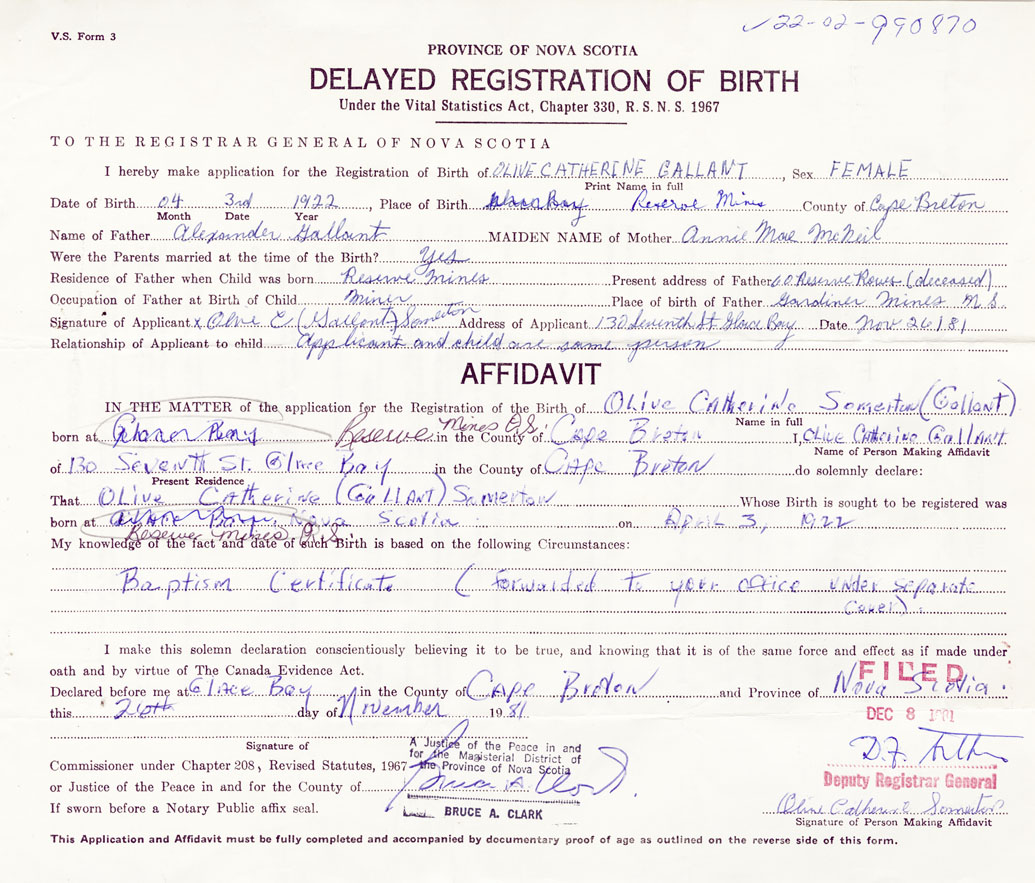 ✓22-02-990870
V.S. Form 3
PROVINCE OF NOVA SCOTIA
DELAYED REGISTRATION OF BIRTH
Under the Vital Statistics Act, Chapter 330, R.S.N.S. 1967
TO THE REGISTRAR GENERAL OF NOVA SCOTIA
I hereby make application for the Registration of Birth of OLIVE CATHERINE GALLANT, Sex FEMALE
Print Name in full
Date of Birth 04 3rd 1922, Place of Birth Reserve Mines County of Cape Breton
Month Date Year
Name of Father Alexander Gallant MAIDEN NAME of Mother Annie Mae McNeil
Were the Parents married at the time of the Birth? Yes
Residence of Father when Child was born Reserve Mines Present address of Father 60 Reserve Rows (deceased)
Occupation of Father at Birth of Child Miner Place of birth of Father Gardiner Mines N S
Signature of Applicant x Olive C. (Gallant) Somerton Address of Applicant 130 Seventh St Glace Bay Date Nov 26/81
Relationship of Applicant to child Applicant and child are same person
AFFIDAVIT
IN THE MATTER of the application for the Registration of the Birth of Olive Catherine Somerton (Gallant)
Name in full
born at Glace Bay Reserve Mines in the County of Cape Breton I, Olive Catherine Gallant
Name of Person Making Affidavit
of 130 Seventh St. Glace Bay in the County of Cape Breton do solemnly declare:
Present Residence
That Olive Catherine (Gallant) Somerton Whose Birth is sought to be registered was
born at Glace Bay, Nova Scotia on April 3, 1922
Reserve Mines
My knowledge of the fact and date of such Birth is based on the following Circumstances:
Baptism Certificate (forwarded to your office under separate
cover).
I make this solemn declaration conscientiously believing it to be true, and knowing that it is of the same force and effect as if made under
oath and by virtue of The Canada Evidence Act.
FILED
Declared before me at Glace Bay in the County of Cape Breton and Province of Nova Scotia.
this 26th day of November 1981
DEC 8 1981
Signature of
A Justice of the Peace in and
for the Magisterial District of
the Province of Nova Scotia
Commissioner under Chapter 208, Revised Statutes, 1967
Deputy Registrar General
or Justice of the Peace in and for the County of Bruce A. Clark
BRUCE A. CLARK
If sworn before a Notary Public affix seal.
Olive Catherine Somerton
Signature of Person Making Affidavit
This Application and Affidavit must be fully completed and accompanied by documentary proof of age as outlined on the reverse side of this form.